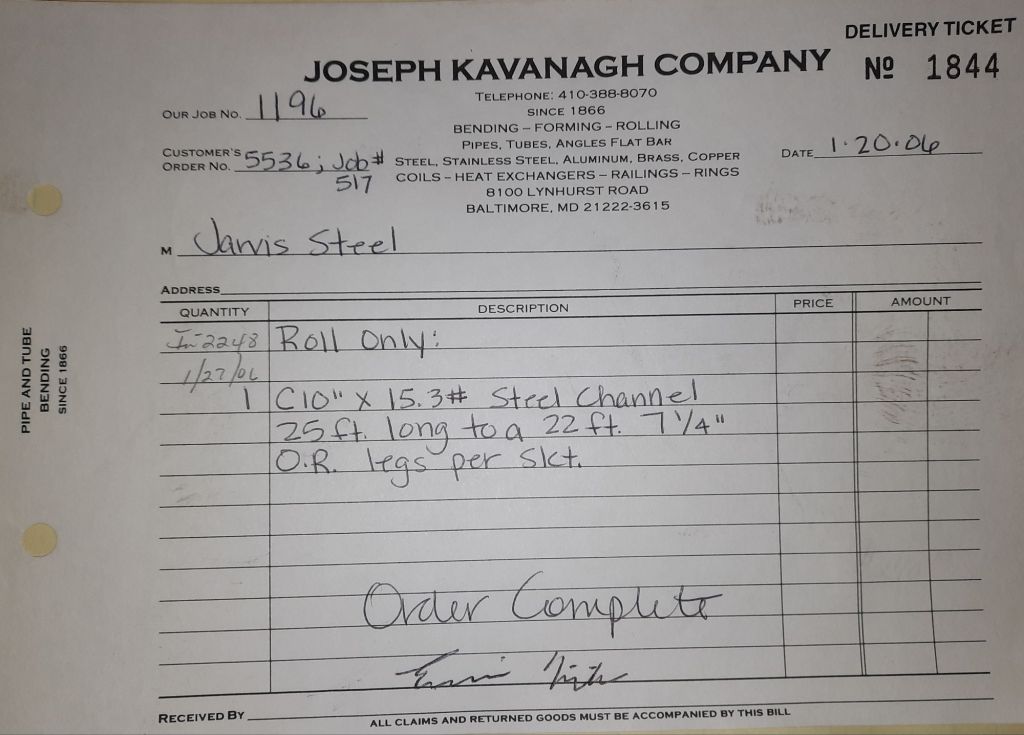 DELIVERY TICKET
JOSEPH KAVANAGH COMPANY
Nº 1844
TELEPHONE: 410-388-8070
SINCE 1866
BENDING – FORMING – ROLLING
PIPES, TUBES, ANGLES FLAT BAR
STEEL, STAINLESS STEEL, ALUMINUM, BRASS, COPPER
COILS – HEAT EXCHANGERS – RAILINGS – RINGS
8100 LYNHURST ROAD
BALTIMORE, MD 21222-3615
OUR JOB NO. 1196
CUSTOMER'S
ORDER NO. 5536; Job#
517
DATE 1·20·06
M Jarvis Steel
ADDRESS
QUANTITY DESCRIPTION PRICE AMOUNT
In-2248 Roll Only:
1/27/06
1 C10" X 15.3# Steel Channel
25 ft. long to a 22 ft. 7 1/4"
O.R. legs per skt.
Order Complete
RECEIVED BY
ALL CLAIMS AND RETURNED GOODS MUST BE ACCOMPANIED BY THIS BILL
PIPE AND TUBE
BENDING
SINCE 1866